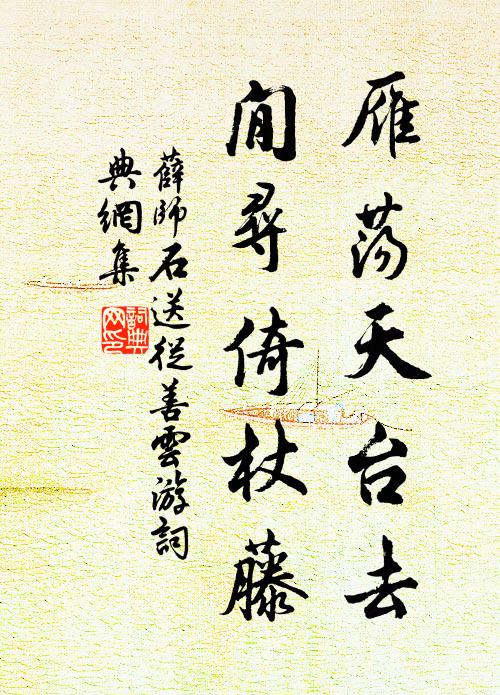 雁荡天台去
閒尋倚杖藤
薛師石送從善雲游詞
典網集
詞典
网印